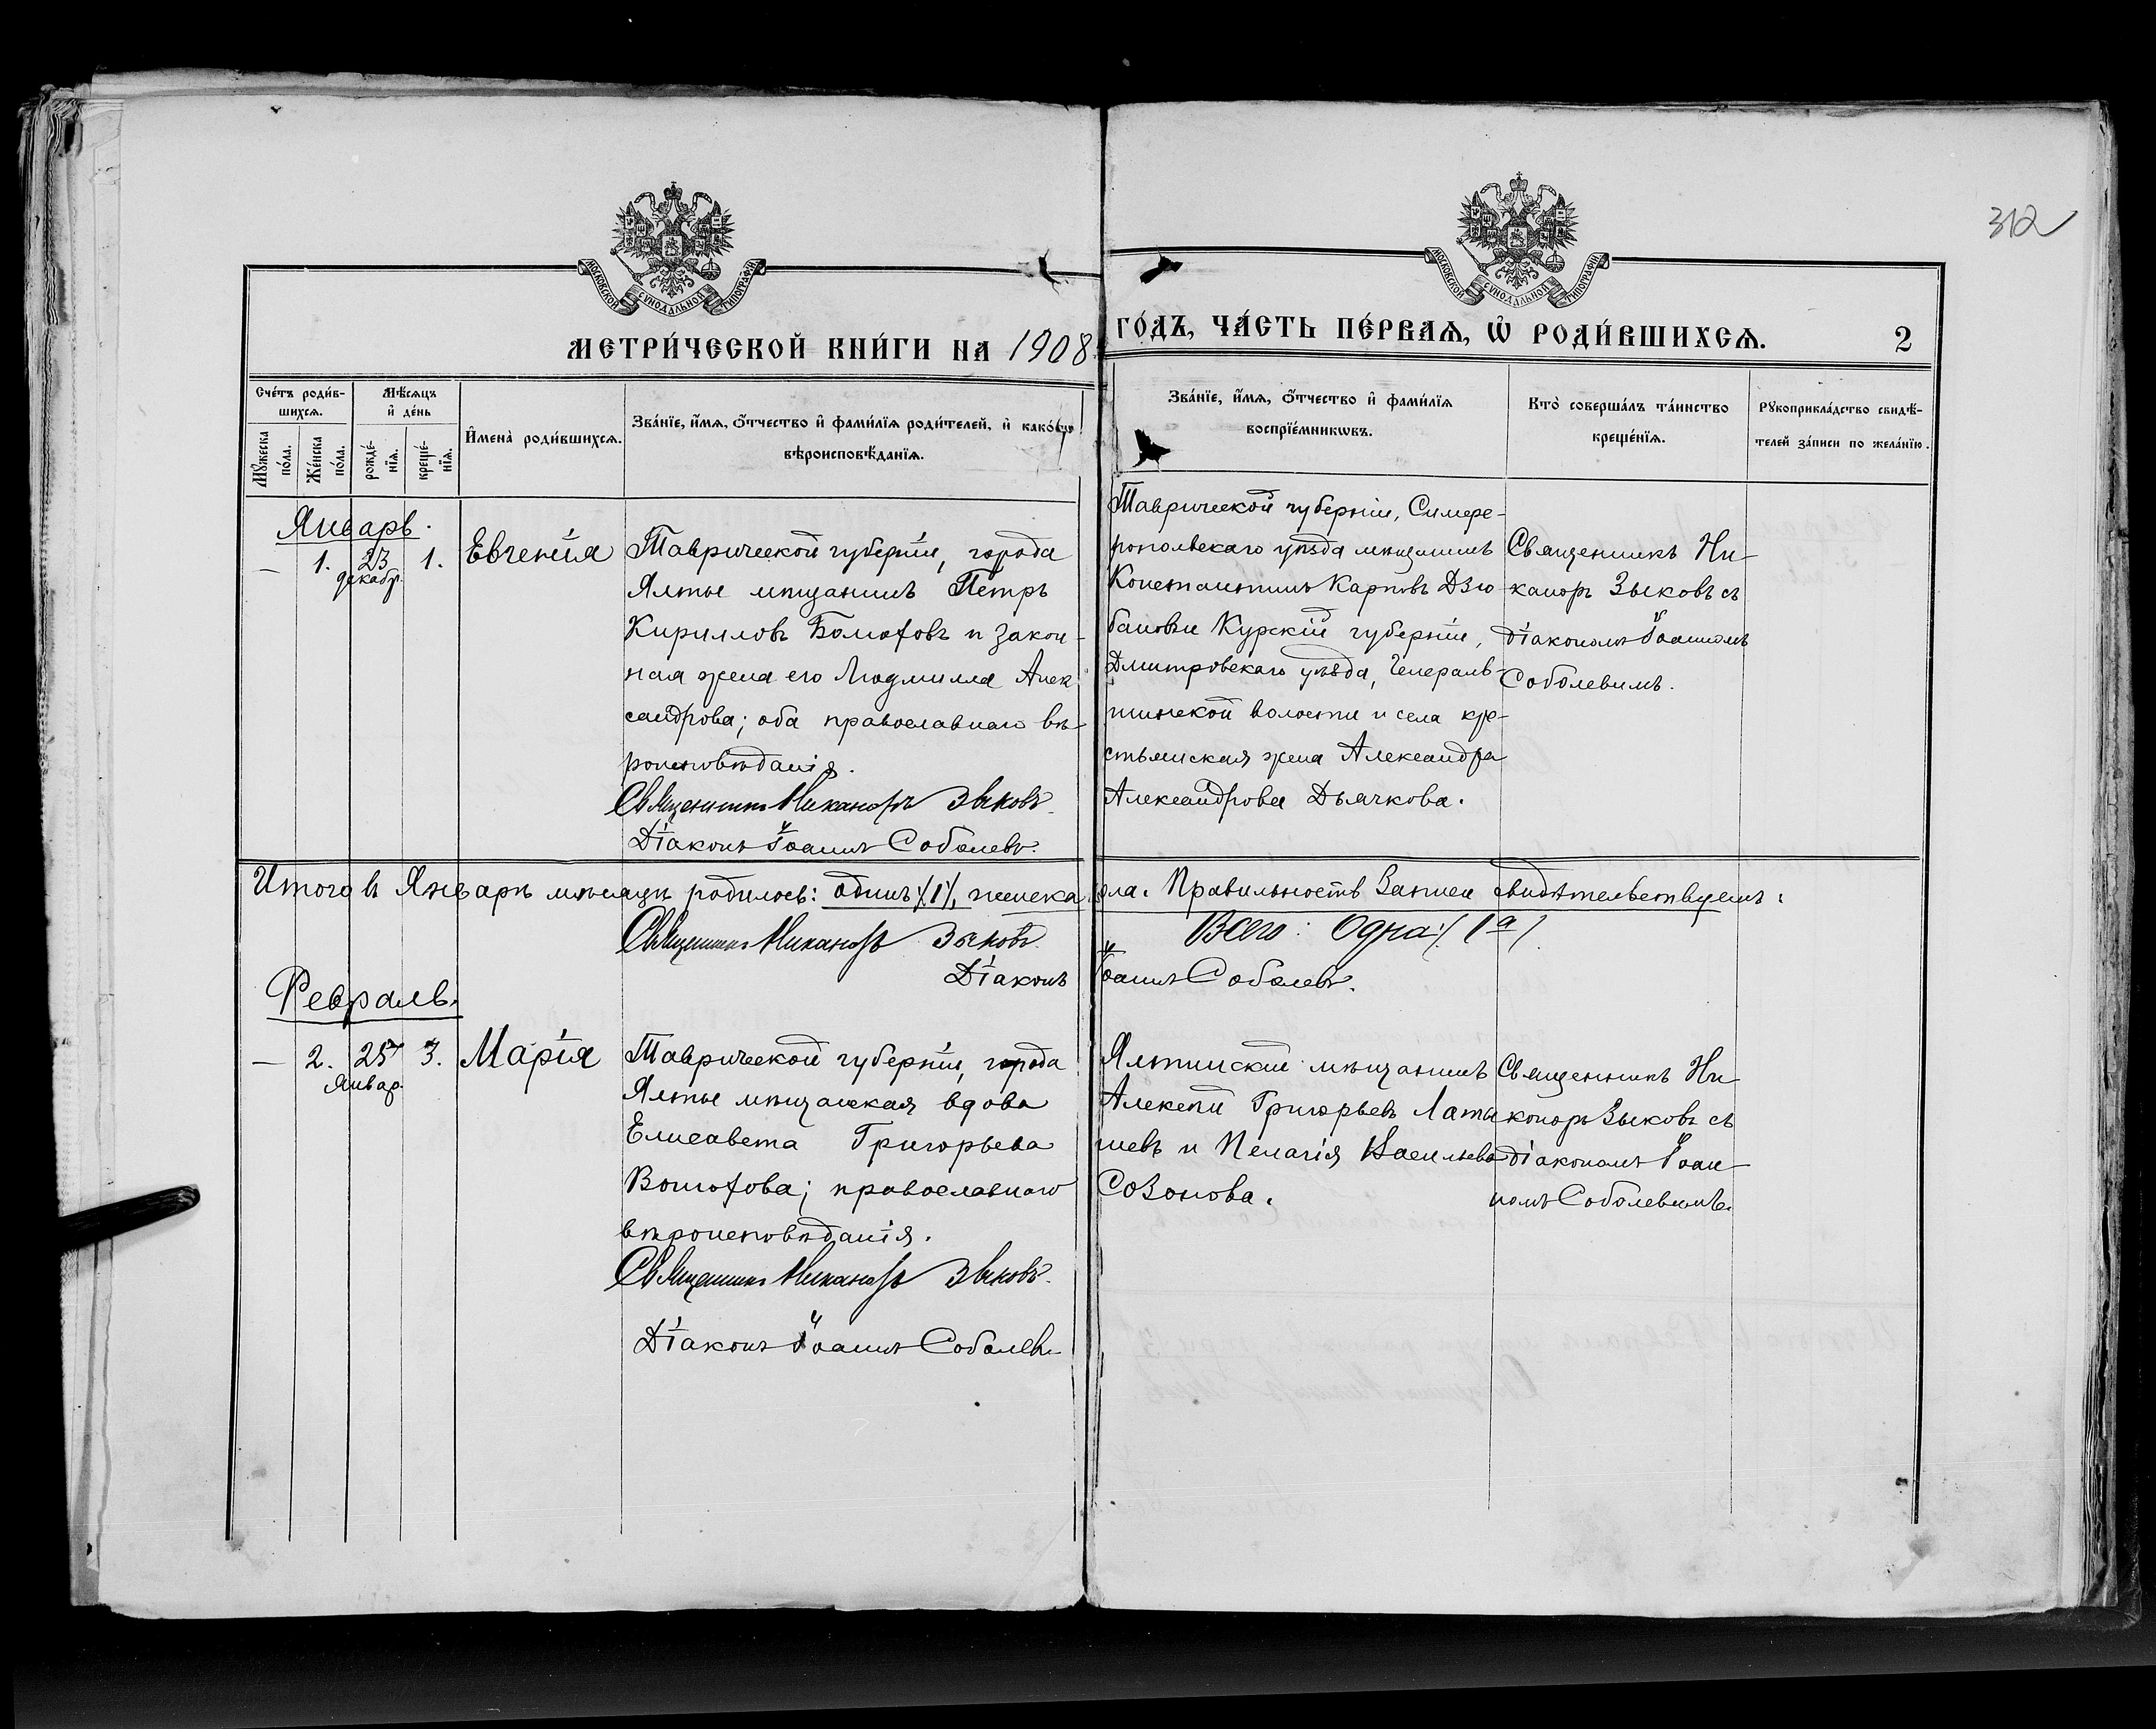 312
МОСКОВСКОЙ СѴНОДАЛЬНОЙ ТИПОГРАФІИ
МОСКОВСКОЙ СѴНОДАЛЬНОЙ ТИПОГРАФІИ
МЕТРИ́ЧЕСКОЙ КНИ́ГИ НА 1908
ГО́ДЪ, ЧА́СТЬ ПЕ́РВАѦ, Ѡ҆ РОДИ́ВШИХСѦ.
2
Сче́тъ роди́в-
шихсѧ.
Мѣ́сѧцъ
и҆ де́нь
Мꙋ́жеска
по́ла.
Же́нска
по́ла.
рожде́-
нїѧ.
креще́-
нїѧ.
И҆мена̀ роди́вшихсѧ.
Зва́нїе, и҆́мѧ, ѻ҆́тчество и҆ фами́лїѧ роди́телей, и҆ како́гѡ
вѣроисповѣ́данїѧ.
Зва́нїе, и҆́мѧ, ѻ҆́тчество и҆ фами́лїѧ
воспрїе́мникѡвъ.
Кто̀ соверша́лъ та́инство
креще́нїѧ.
Рꙋкоприкла́дство свидѣ́-
телей за́писи по жела́нїю.
Январь.
— 1. 23 1.
декабр.
Евгенія
Таврической губерніи, города
Ялты мѣщанинъ Петръ
Кирилловъ и закон-
ная жена его Людмилла Алек
сандрова; оба православнаго вѣ-
роисповѣданія.
Священникъ Никаноръ Зыковъ.
Діаконъ Іоаннъ Соболевъ.
Таврической губерніи, Симфе-
ропольскаго уѣзда мѣщанинъ
Константинъ Карповъ Дзю
бановъ и Курскій губерніи,
Дмитровскаго уѣзда, Генераль-
шинской волости и села кре-
стьянская жена Александра
Александрова Дьячкова.
Священникъ Ни-
каноръ Зыковъ съ
діакономъ Іоанномъ
Соболевымъ.
Итого въ Январѣ мѣсяцѣ родилось: одинъ /1/, женска пола. Правильность записи свидѣтельствуемъ:
Священникъ Никаноръ Зыковъ. Всего: Одна /1а/.
Діаконъ Іоаннъ Соболевъ.
Февраль.
— 2. 25 3.
Январ.
Марія
Таврической губерніи, города
Ялты мѣщанская вдова
Елисавета Григорьева
православнаго
вѣроисповѣданія.
Священникъ Никаноръ Зыковъ.
Діаконъ Іоаннъ Соболевъ.
Ялтинскій мѣщанинъ
Алексѣй Григорьевъ Латы
шевъ и Пелагія Васильева
Созонова.
Священникъ Ни-
каноръ Зыковъ съ
діакономъ Іоан-
номъ Соболевымъ.